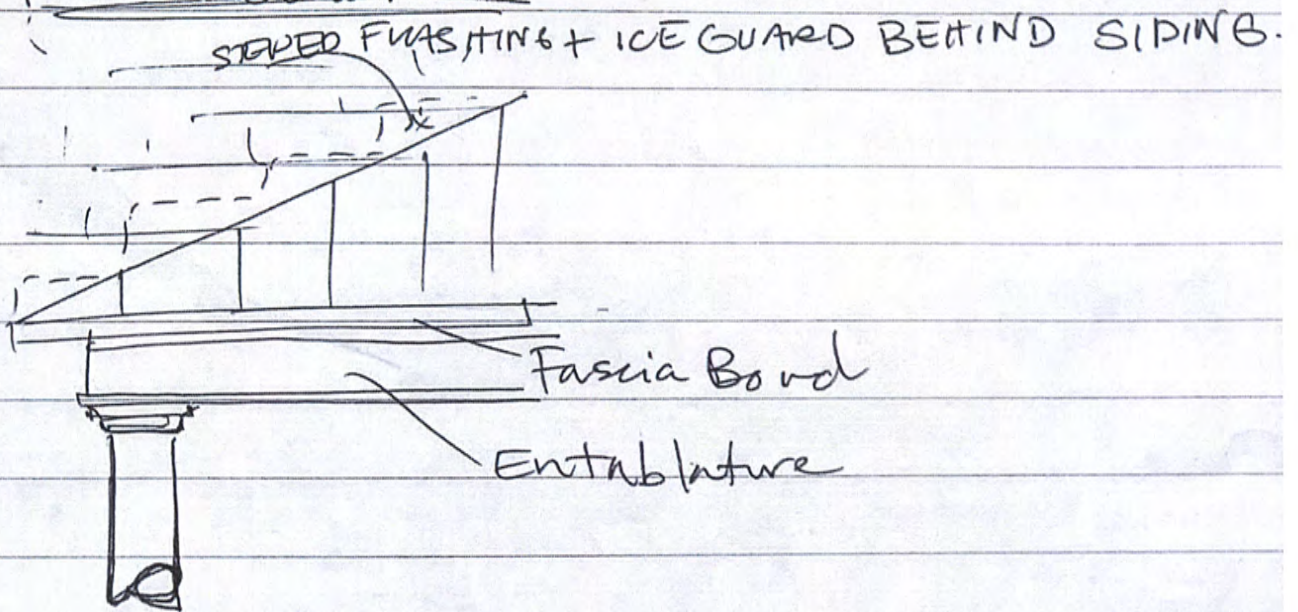 FLASHING + ICE GUARD BEHIND SIDING.
Fascia Bord
Entablature